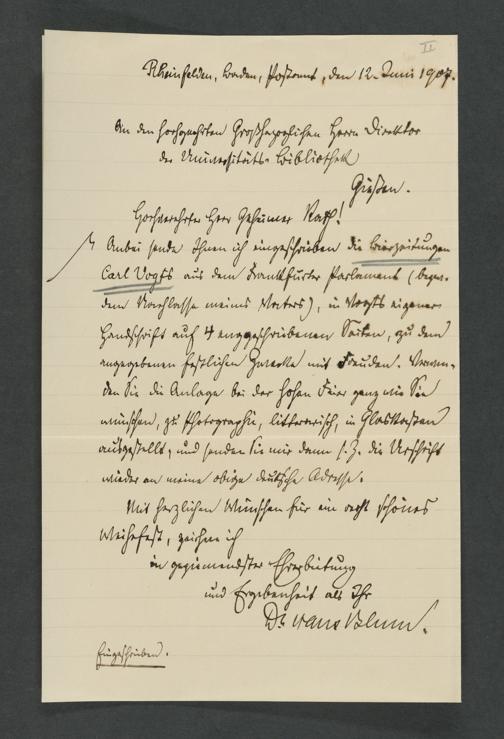 II
Rheinfelden, Baden, Postamt, den 12. Juni 1907.
An den hochgeehrten Großherzoglichen Herrn Direktor
der Universitäts-Bibliothek
Gießen.
Hochverehrter Herr Geheimer Rath!
Anbei sende Ihnen ich eingeschrieben die Bierzeitungen
Carl Vogt's aus dem Frankfurter Parlament (bezw.
dem Nachlasse meines Vaters), in Vogt's eigener
Handschrift auf 4 enggeschriebenen Seiten, zu dem
angegebenen festlichen Zwecke mit Freuden. Verwen-
den Sie die Anlage bei der hohen Feier ganz wie Sie
wünschen, zu Photographie, litterarisch, in Glaskasten
ausgestellt, und senden Sie mir dann s. Z. die Urschrift
wieder an meine obige deutsche Adresse.
Mit herzlichen Wünschen für ein recht schönes
Weihefest, zeichne ich
in geziemendster Ehrerbietung
und Ergebenheit als Ihr
Dr. Hans Blum.
Eingeschrieben.